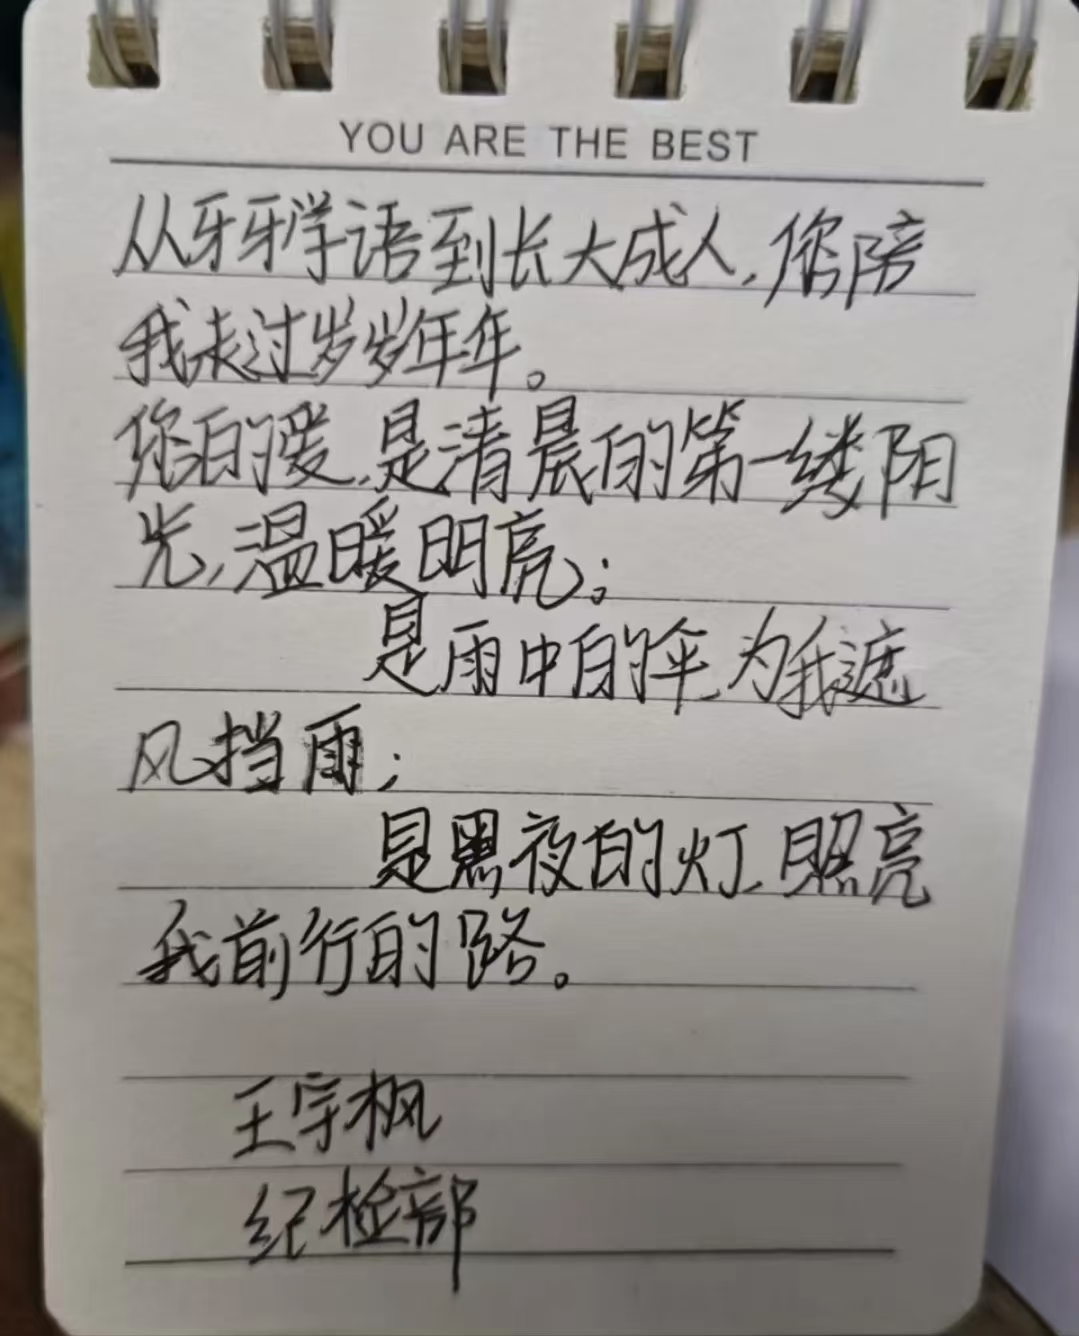 YOU ARE THE BEST
从牙牙学语到长大成人,您陪
我走过岁岁年年。
您的爱,是清晨的第一缕阳
光,温暖明亮;
是雨中的伞,为我遮
风挡雨;
是黑夜的灯,照亮
我前行的路。
王宇枫
纪检部